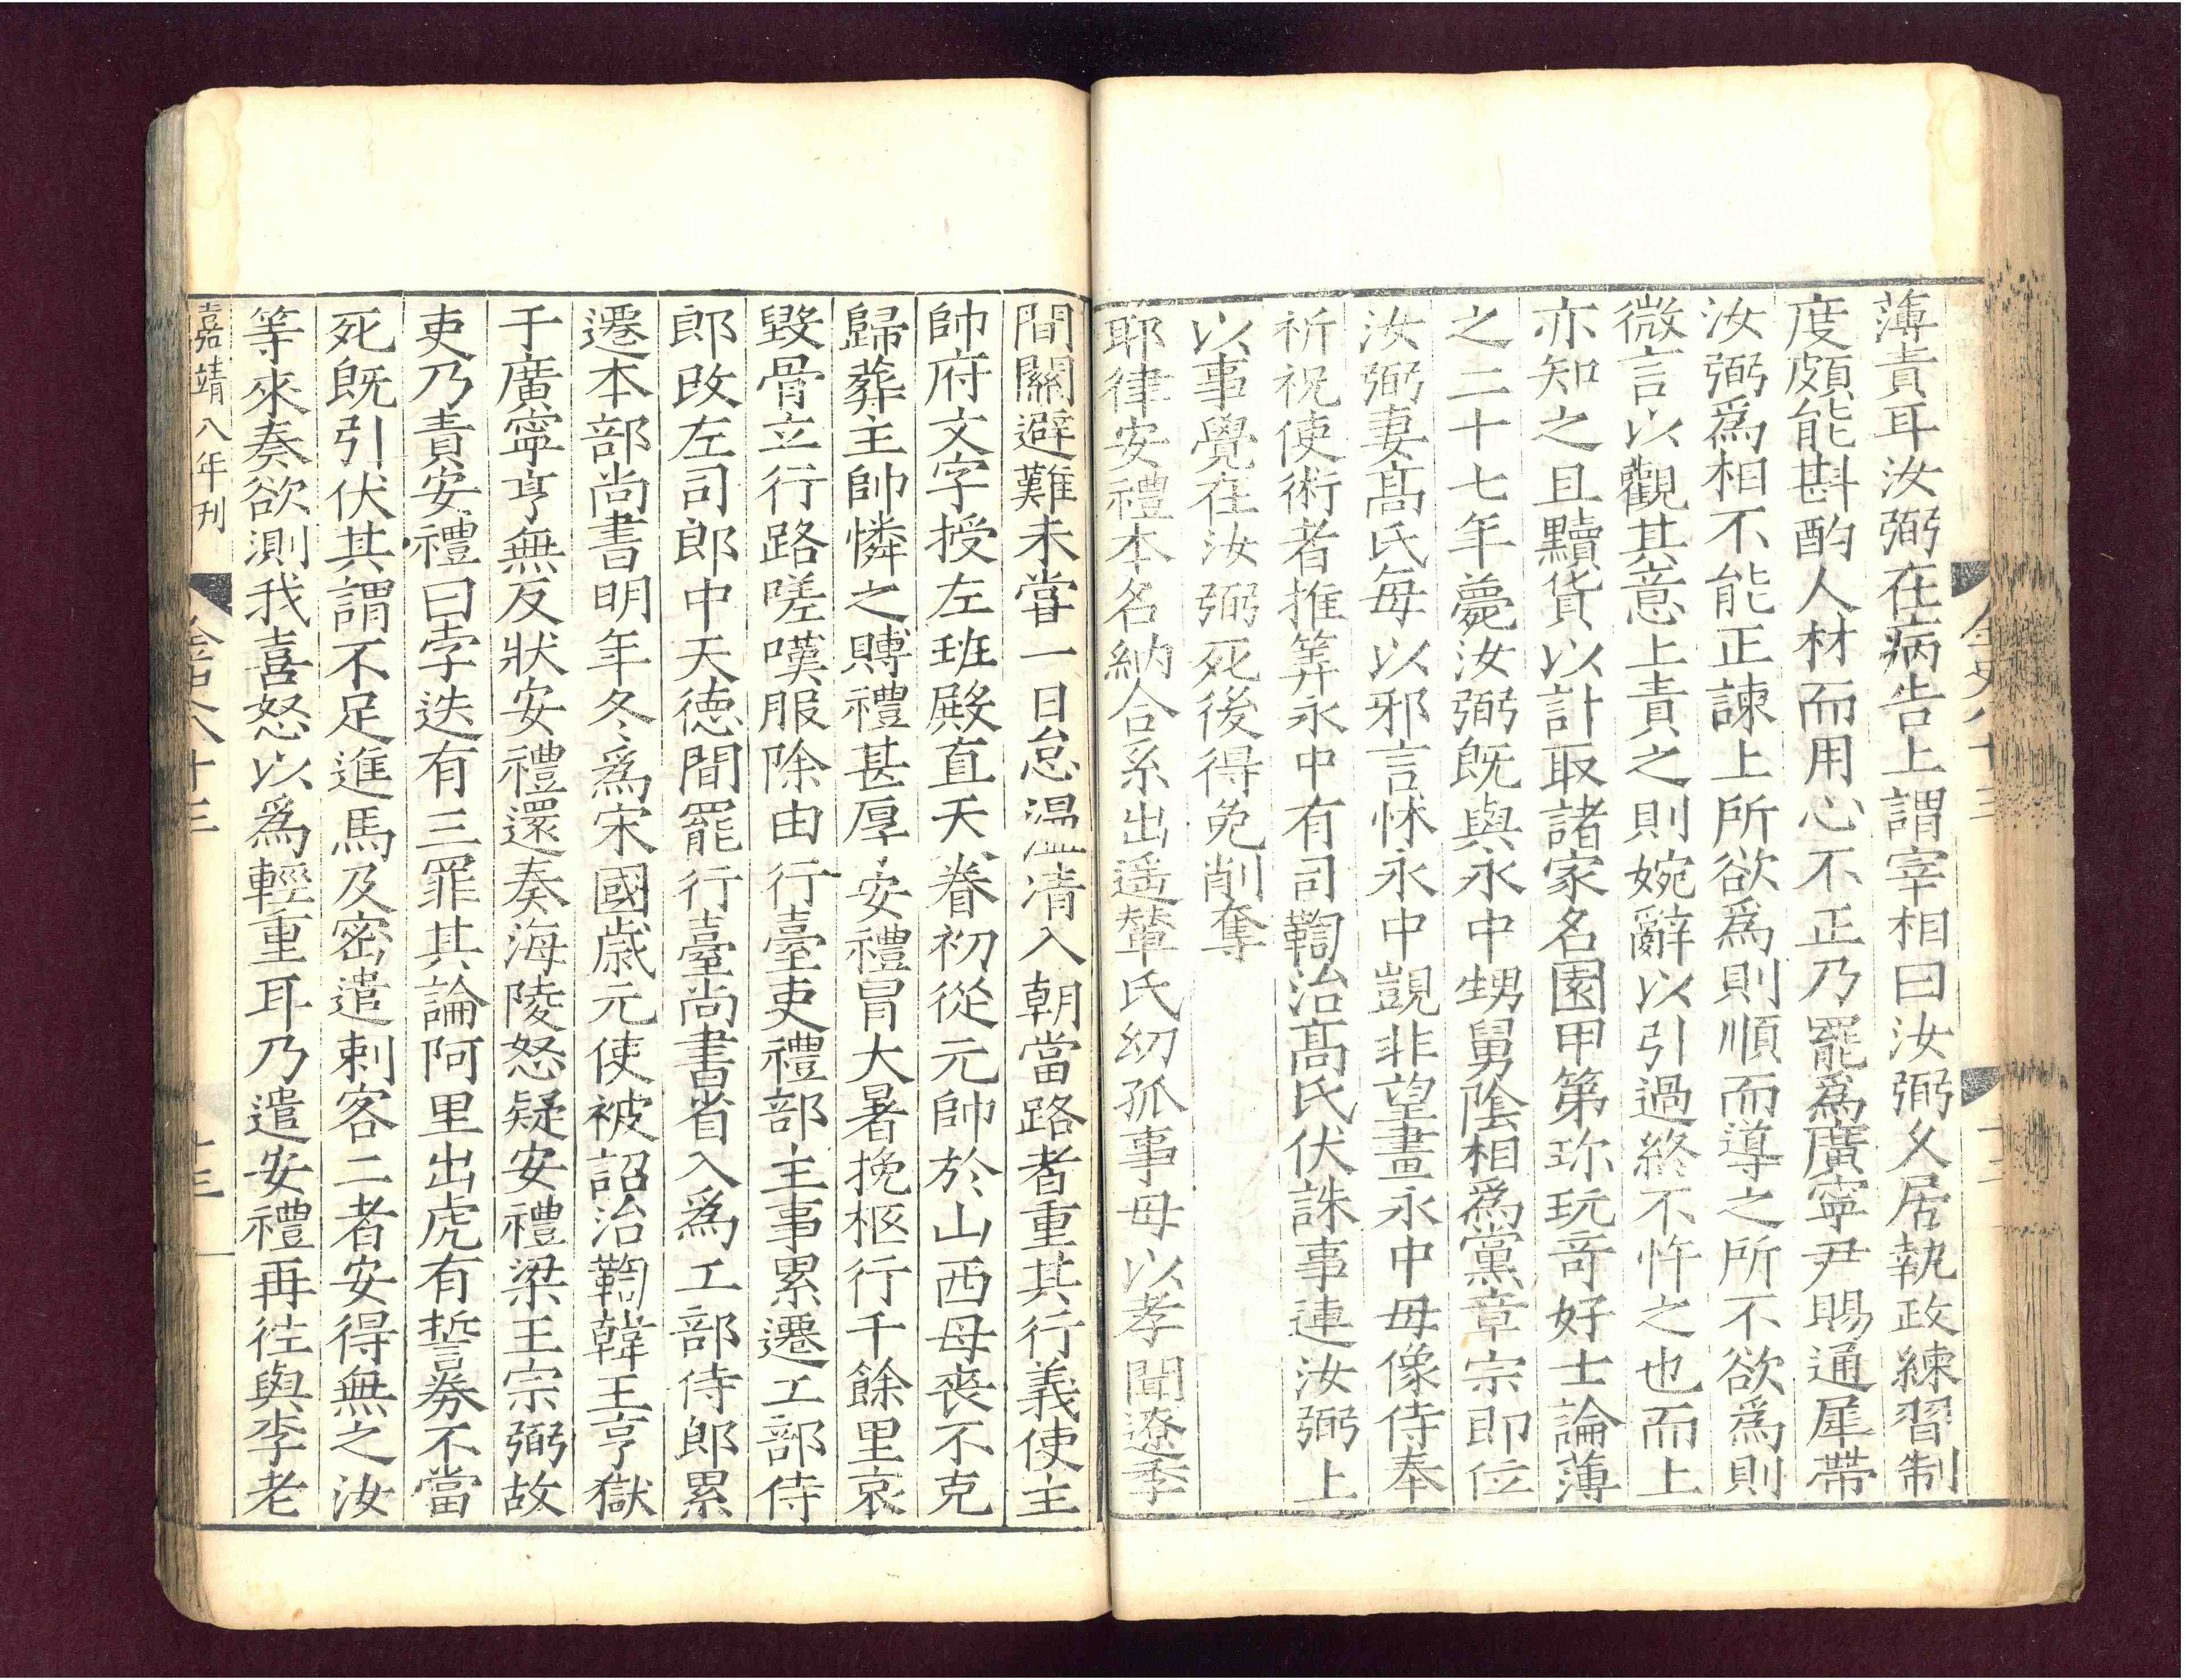 薄責耳汝弼在病告上謂宰相曰汝弼久居執政練習制
度頗能斟酌人材而用心不正乃罷爲廣寧尹賜通犀帶
汝弼爲相不能正諫上所欲爲則順而導之所不欲爲則
微言以觀其意上責之則婉辭以引過終不忤之也而上
亦知之且黷貨以計取諸家名園甲第珎玩竒好士論薄
之二十七年薨汝弼既與永中甥舅隂相爲黨章宗即位
汝弼妻髙氏毎以邪言怵永中覬非望畫永中母像侍奉
祈祝使術者推筭永中有司鞫治髙氏伏誅事連汝弼上
以事覺在汝弼死後得免削奪
耶律安禮本名納合系出遥輦氏幼孤事母以孝聞遼季
間關避難未甞一日怠温凊入朝當路者重其行義使主
帥府文字授左班殿直天眷初從元帥於山西母喪不克
歸葬主帥憐之賻禮甚厚安禮冒大暑挽柩行千餘里哀
毀骨立行路嗟嘆服除由行臺吏禮部主事累遷工部侍
郎改左司郎中天德間罷行臺尚書省入爲工部侍郎累
遷本部尚書明年冬爲宋國歲元使被詔治鞫韓王亨獄
于廣寧亨無反狀安禮還奏海陵怒疑安禮梁王宗弼故
吏乃責安禮曰孛迭有三罪其論阿里出虎有誓券不當
死既引伏其謂不足進馬及密遣刺客二者安得無之汝
等來奏欲測我喜怒以爲輕重耳乃遣安禮再往與李老
嘉靖八年刊 金史八十三 十三